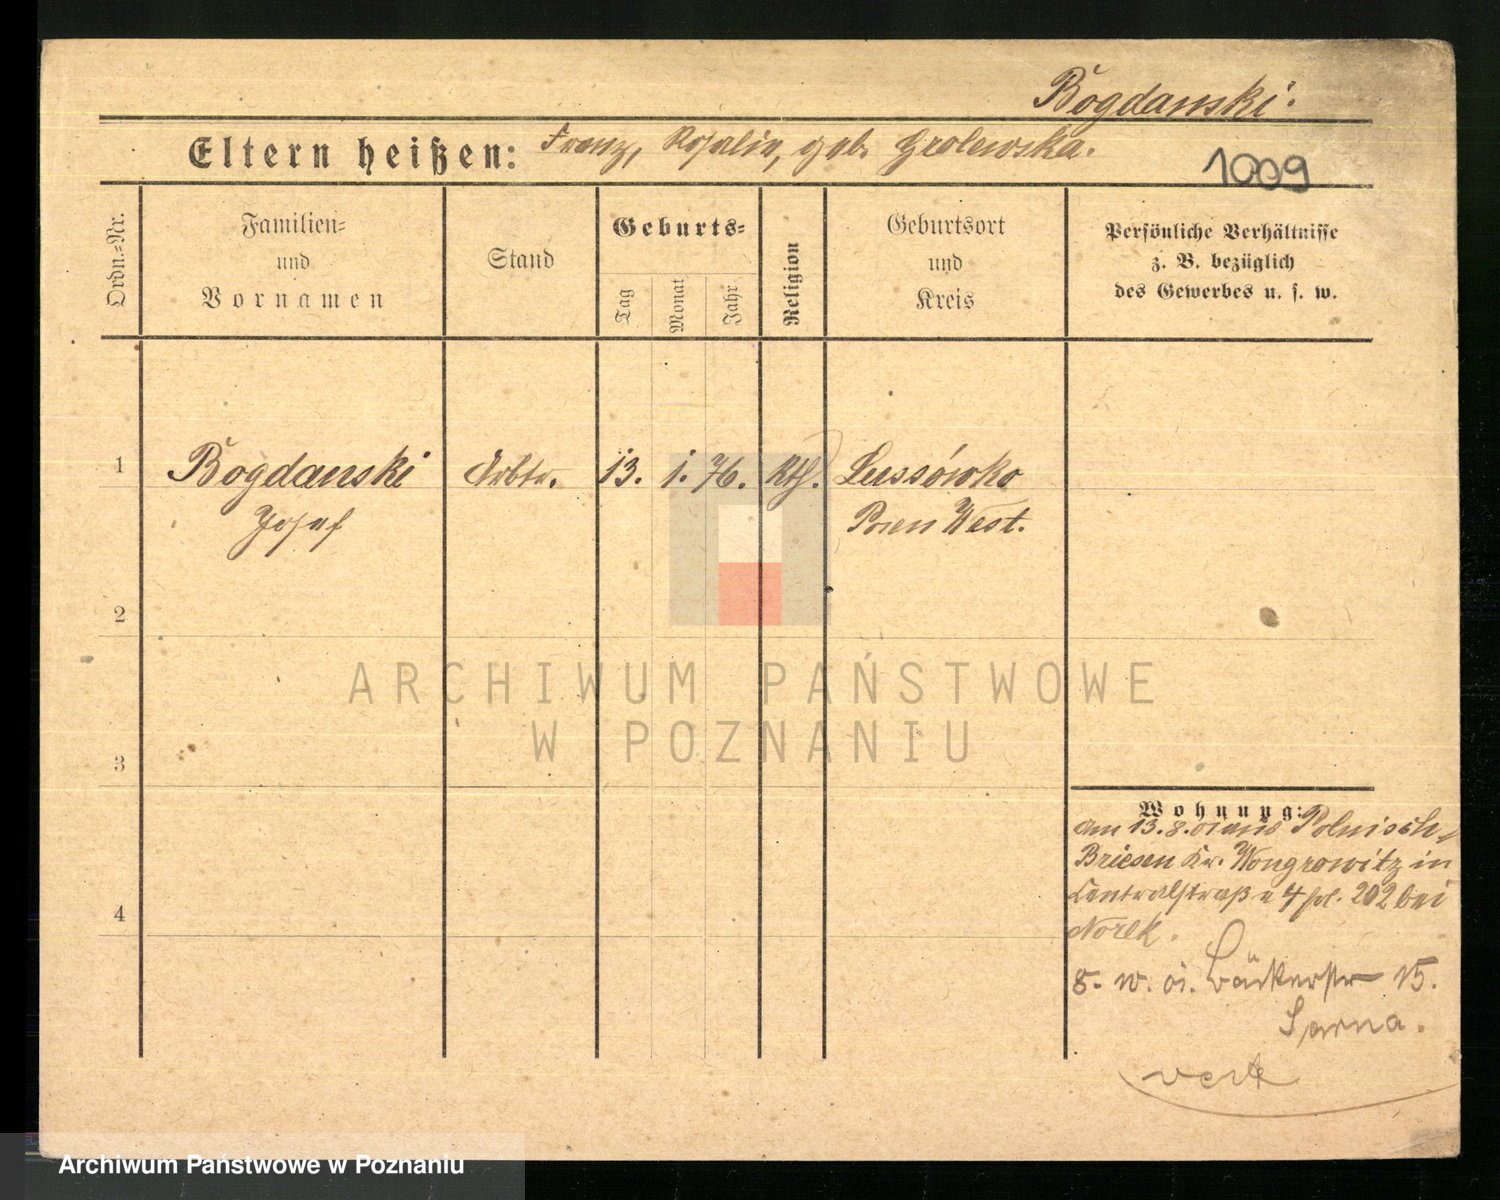 Bogdanski.
Eltern heißen: Franz, Rosalie, geb. Grolewska.
1009
Ordn.-Nr.
Familien-
und
Vornamen
Stand
Geburts-
Tag
Monat
Jahr
Religion
Geburtsort
und
Kreis
Persönliche Verhältnisse
z. B. bezüglich
des Gewerbes u. s. w.
1
Bogdanski
Josef
Arbtr.
13.
1.
76.
Kth.
Lussówko
Posen West.
2
3
4
Wohnung:
am 13.8.01 aus Polnisch-
Briesen Kr. Wongrowitz in
Centralstraße 4 bei
Norek.
Bäckerstr 15.
Sarna.
ARCHIWUM PAŃSTWOWE
W POZNANIU
Archiwum Państwowe w Poznaniu